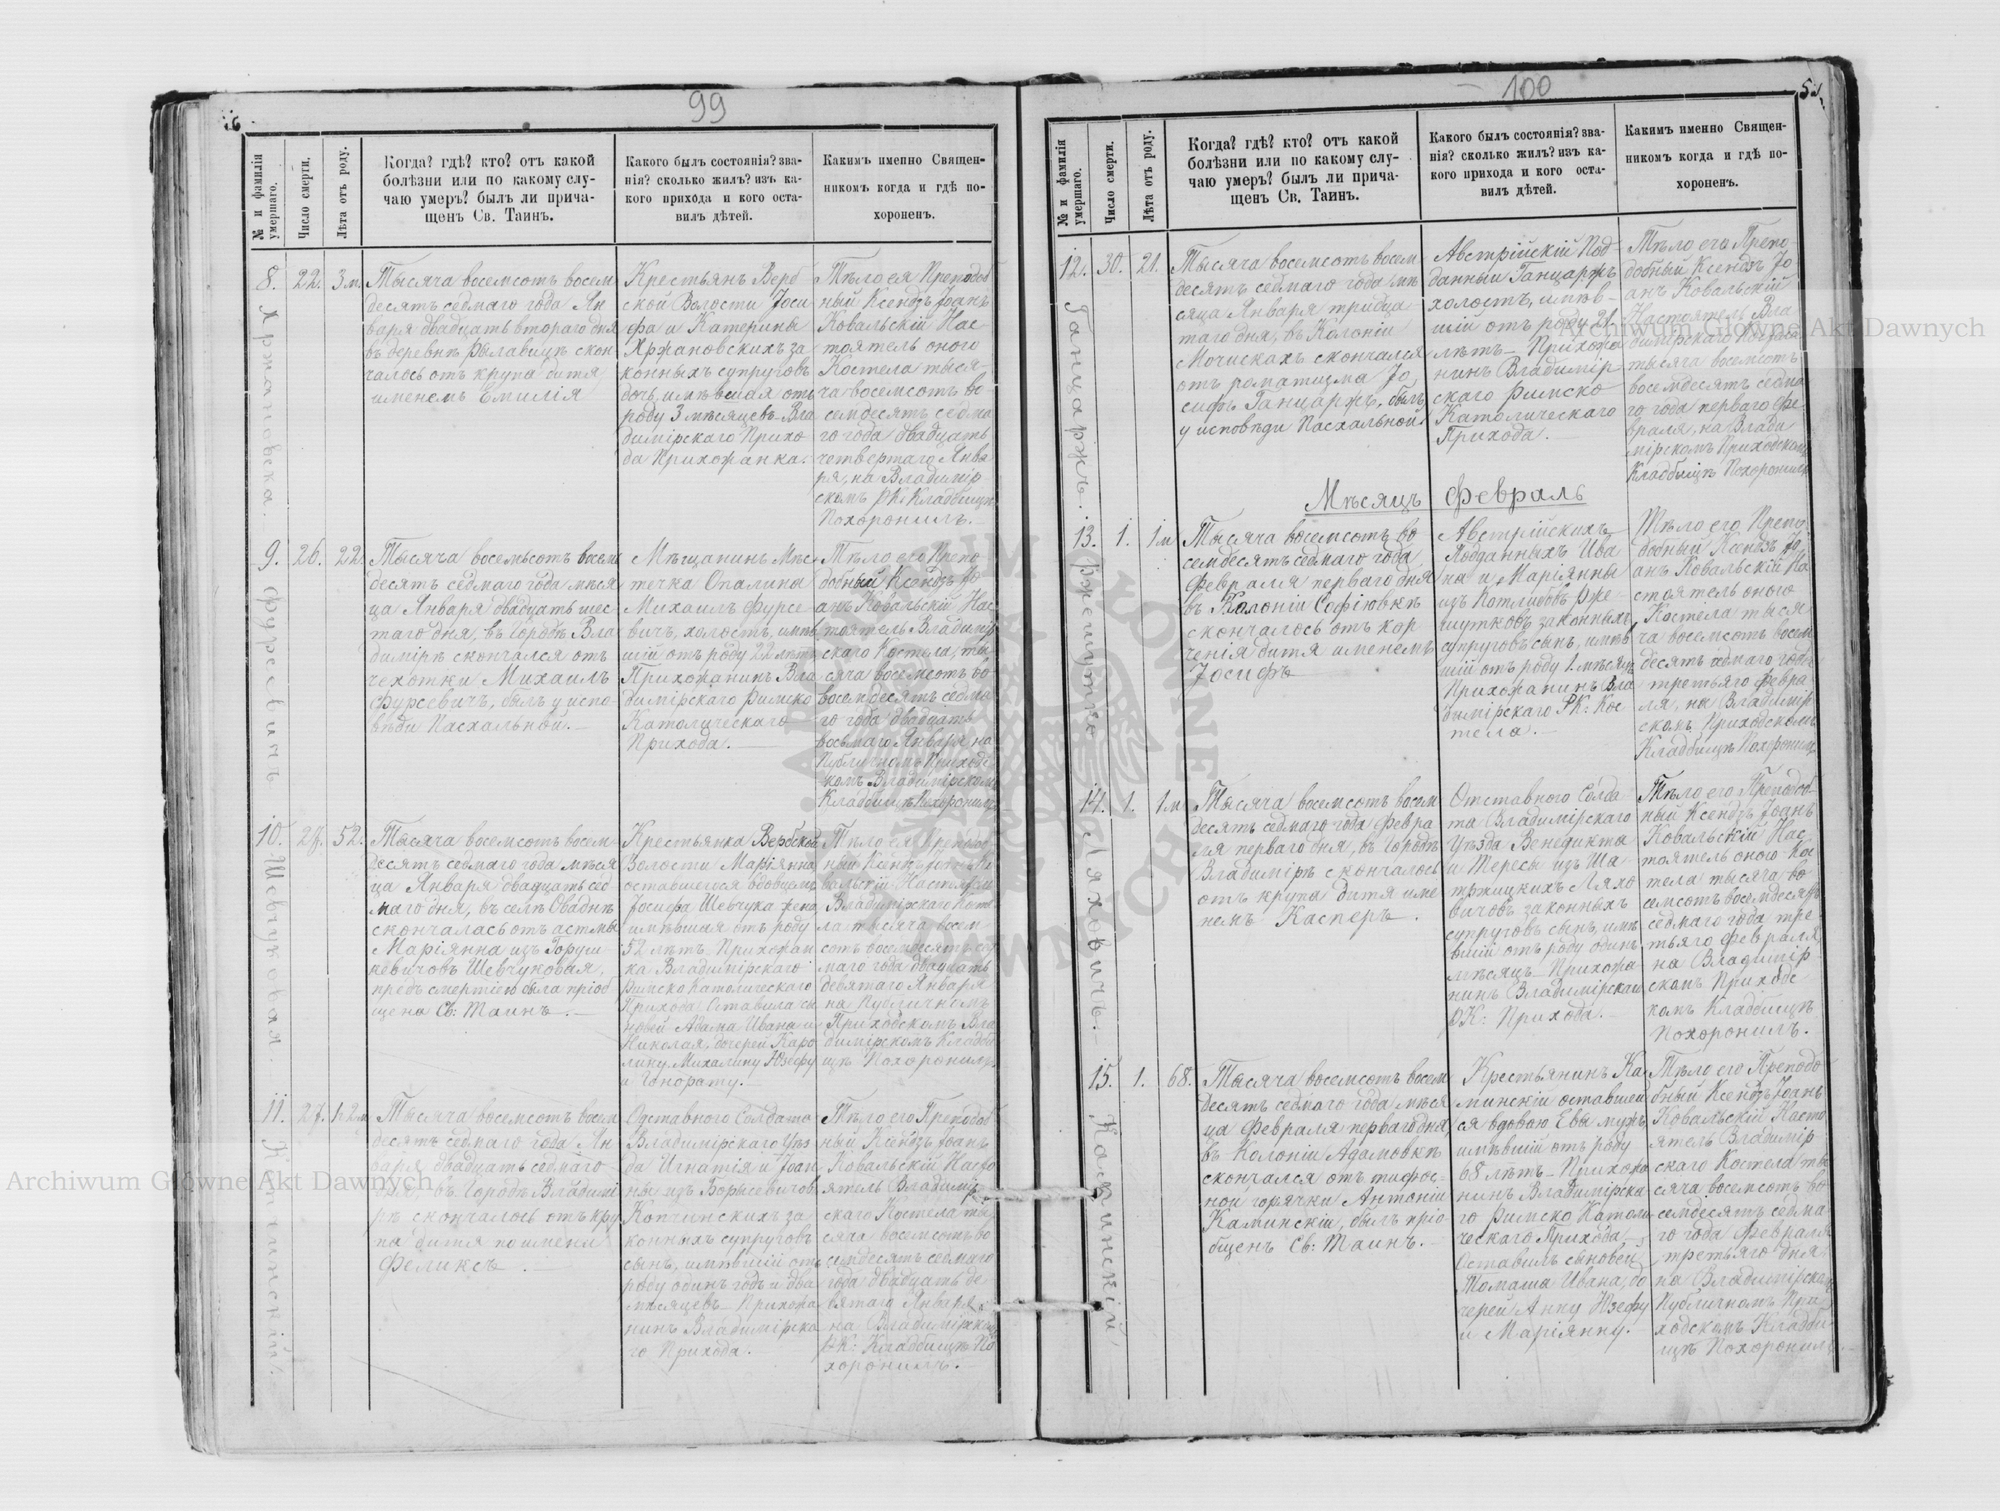 99
№ и фамилія умершаго.
Число смерти.
Лѣта отъ роду.
Когда? гдѣ? кто? отъ какой
болѣзни или по какому слу-
чаю умеръ? былъ ли прича-
щенъ Св. Таинъ.
Какого былъ состоянія? зва-
нія? сколько жилъ? изъ ка-
кого прихода и кого оста-
вилъ дѣтей.
Какимъ именно Священ-
никомъ когда и гдѣ по-
хороненъ.
8.
Хржановска.
22.
3 м.
Тысяча восемсотъ восем
десятъ седмаго года Ян
варя двадцать втораго дня
въ деревнѣ скон
чалось отъ крупа дитя
именемъ Емилія
Крестьянъ Верб
ской Волости Іоси
фа и Катерины
Хржановскихъ за
конныхъ супруговъ
дочь, имѣвшая отъ
роду 3 мѣсяцевъ Вла
димірскаго Прихо
да Прихожанка.
Тѣло ея Преподоб
ный Ксендзъ Іоанъ
Ковальскій Нас
тоятель оного
Костела тыся
ча восемсотъ во
семдесятъ седма
го года двадцать
четвертаго Янва
ря, на Владимір
скомъ РК: Кладбищѣ
Похоронилъ.
9.
Фурсевичъ
26.
22.
Тысяча восемьсотъ восемь
десятъ седмаго года мѣся
ца Января двадцать шес
таго дня, въ Городѣ Вла
димірѣ скончался отъ
чехотки Михаилъ
Фурсевичъ, былъ у испо
вѣди Пасхальной.
Мѣщанинъ Мѣс
течка Опалина
Михаилъ Фурсе
вичъ, холостъ, имѣв
шій отъ роду 22 лѣтъ
Прихожанинъ Вла
димірскаго Римско
Католическаго
Прихода.
Тѣло его Препо
добный Ксендзъ Іо
анъ Ковальскій Нас
тоятель Владимір
скаго Костела, ты
сяча восемсотъ во
восемдесятъ седма
го года двадцать
восьмаго Января на
Публичномъ Приходс
комъ Владимірскомъ
Кладбищѣ Похоронилъ
10.
Шевчуковая.
27.
52.
Тысяча восемсотъ восем
десятъ седмаго года мѣся
ца Января двадцать сед
маго дня, въ селѣ Оваднѣ
скончалась отъ астмы
Маріянна изъ Горуш
кевичовъ Шевчуковая,
предъ смертію была пріоб
щена Св: Таинъ.
Крестьянка Вербской
Волости Маріянна
оставшегося вдовцемъ
Іосифа Шевчука жена
имѣвшая отъ роду
52 лѣтъ Прихожан
ка Владимірскаго
Римско Католическаго
Прихода. Оставила сы
новей Адама Ивана и
Николая, дочерей Каро
лину, Михалину Юзефу
и Гонорату.
Тѣло ея Преподоб
ный Ксендзъ Іоанъ Ко
вальскій Настоятель
Владимірскаго Косте
ла тысяча восем
сотъ восемдесятъ сед
маго года двадцать
девятаго Января
на Публичномъ
Приходскомъ Вла
димірскомъ Кладби
щѣ Похоронилъ
11.
Копчинскій.
27.
1 г. 2 м.
Тысяча восемсотъ восем
десятъ седмаго года Ян
варя двадцать седмаго
дня, въ Городѣ Владимі
рѣ скончалось отъ кру
па дитя по имени
Феликсъ.
Отставного Солдата
Владимірскаго Уѣз
да Игнатія и Іоан
ны изъ Борысевичовъ
Копчинскихъ за
конныхъ супруговъ
сынъ, имѣвшій отъ
роду одинъ годъ и два
мѣсяцевъ Прихожа
нинъ Владимірска
го Прихода.
Тѣло его Преподоб
ный Ксендзъ Іоанъ
Ковальскій Насто
ятель Владимір
скаго Костела ты
сяча восемсотъ во
семдесятъ седмаго
года двадцать де
вятаго Января
на Владимірскомъ
РК: Кладбищѣ По
хоронилъ.
100
52
№ и фамилія умершаго.
Число смерти.
Лѣта отъ роду.
Когда? гдѣ? кто? отъ какой
болѣзни или по какому слу-
чаю умеръ? былъ ли прича-
щенъ Св. Таинъ.
Какого былъ состоянія? зва-
нія? сколько жилъ? изъ ка-
кого прихода и кого оста-
вилъ дѣтей.
Какимъ именно Священ-
никомъ когда и гдѣ по-
хороненъ.
12.
Ганцаржъ.
30.
21.
Тысяча восемсотъ восем
десятъ седмаго года мѣ
сяца Января тридца
таго дня, въ Колоніи
Мочискахъ скончался
отъ роматизма Іо
сифъ Ганцаржъ, былъ
у исповѣди Пасхальной
Австрійскій Под
данный Ганцаржъ
холостъ, имѣв
шій отъ роду 21
лѣтъ Прихожа
нинъ Владимір
скаго Римско
Католическаго
Прихода.
Тѣло его Препо
добный Ксендзъ Іо
анъ Ковальскій
Настоятель Вла
димірскаго Костела
тысяча восемсотъ
восемдесятъ седма
го года перваго Фе
враля, на Влади
мірскомъ Приходскомъ
Кладбищѣ Похоронилъ
Мѣсяцъ Февраль
13.
Ржешутко
1.
1 м
Тысяча восемсотъ во
семдесятъ седмаго года
Февраля перваго дня
въ Колоніи Софіювкѣ
скончалось отъ кор
ченія дитя именемъ
Іосифъ
Австрійскихъ
Подданныхъ Ива
на и Маріянны
изъ Котлибовъ Рже
шутковъ законныхъ
супруговъ сынъ, имѣв
шій отъ роду 1 мѣсяцъ
Прихожанинъ Вла
димірскаго РК: Кос
тела.
Тѣло его Препо
добный Ксендзъ Іо
анъ Ковальскій На
стоятель оного
Костела тыся
ча восемсотъ восем
десятъ седмаго года
третьяго Февра
ля, на Владимір
скомъ Приходскомъ
Кладбищѣ Похоронилъ
14.
Ляховичъ.
1.
1 м
Тысяча восемсотъ восем
десятъ седмаго года Февра
ля перваго дня, въ Городѣ
Владимірѣ скончалось
отъ крупа дитя име
немъ Касперъ.
Отставного Солда
та Владимірскаго
Уѣзда Венедикта
и Тересы изъ Ша
тржицкихъ Ляхо
вичовъ законныхъ
супруговъ сынъ, имѣ
вшій отъ роду одинъ
мѣсяцъ Прихожа
нинъ Владимірскаго
РК: Прихода.
Тѣло его Преподоб
ный Ксендзъ Іоанъ
Ковальскій Нас
тоятель оного Кос
тела тысяча во
семсотъ восемдесятъ
седмаго года тре
тьяго Февраля
на Владимір
скомъ Приходс
комъ Кладбищѣ
Похоронилъ.
15.
Каминскій
1.
68.
Тысяча восемсотъ восем
десятъ седмаго года мѣся
ца Февраля перваго дня,
въ Колоніи Адамовкѣ
скончался отъ тифоз
ной горячки Антоній
Каминскій, былъ пріо
бщенъ Св: Таинъ.
Крестьянинъ Ка
минскій оставшей
ся вдовою Евы мужъ,
имѣвшій отъ роду
68 лѣтъ Прихожа
нинъ Владимірска
го Римско Католи
ческаго Прихода,
Оставилъ сыновей
Томаша Ивана, до
черей Анну Юзефу
и Маріянну.
Тѣло его Преподо
бный Ксендзъ Іоанъ
Ковальскій Насто
ятель Владимір
скаго Костела ты
сяча восемсотъ во
семдесятъ седма
го года Февраля
третьяго дня
на Владимірскомъ
Публичномъ При
ходскомъ Кладби
щѣ Похоронилъ.
Archiwum Główne Akt Dawnych
Archiwum Główne Akt Dawnych
ARCHIWUM GŁÓWNE AKT DAWNYCH